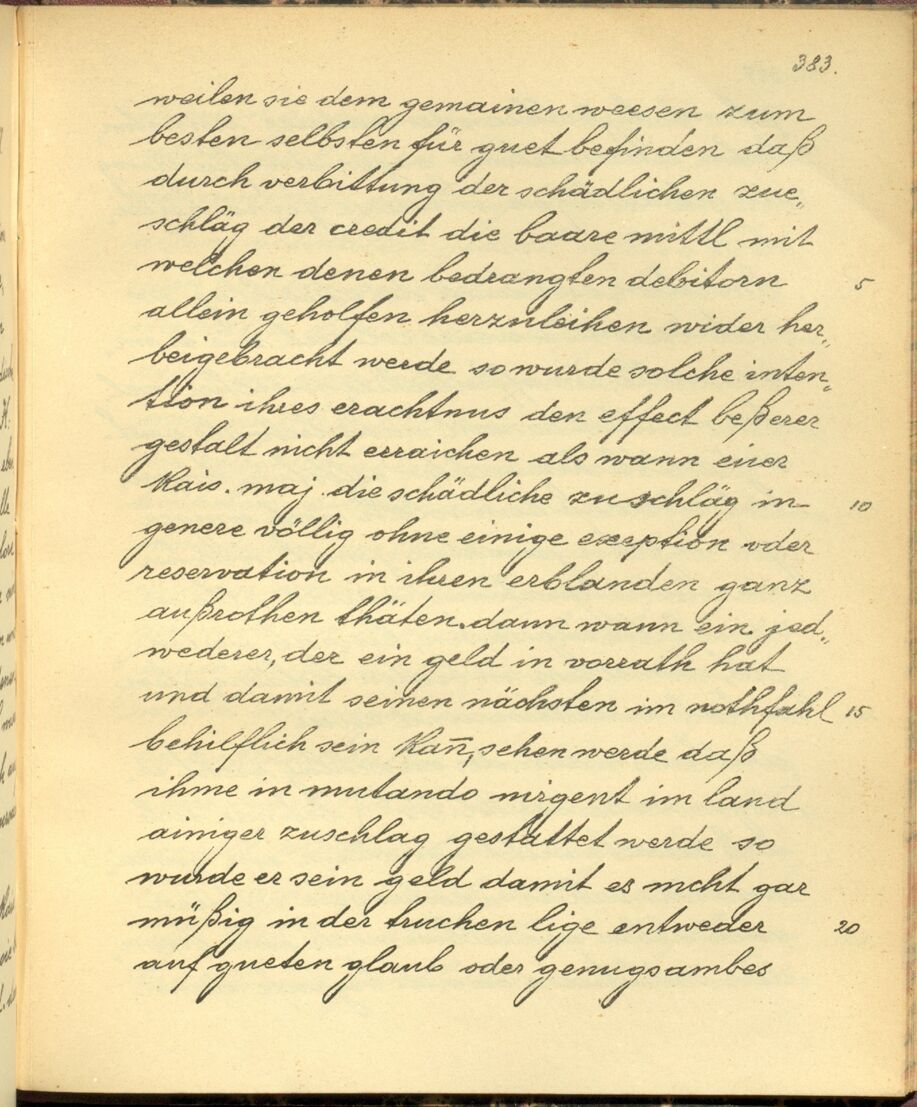 383.
weilen sie dem gemainen weesen zum
besten selbsten für guet befinden daß
durch verbittung der schädlichen zue„
schläg der credit die baare mittl mit
welchen denen bedrangten debitorn 5
allein geholfen herzuleihen wider her„
beigebracht werde so wurde solche inten„
tion ihres erachtnus den effect beßerer
gestalt nicht erraichen als wann euer
Kais. maj. die schädliche zuschläg in 10
genere völlig ohne einige exception oder
reservation in ihren erblanden ganz
außrothen thäten. dann wann ein jed„
wederer, der ein geld in vorrath hat
und damit seinen nächsten im nothfahl 15
behilflich sein kan̄, sehen werde daß
ihme in mutando nirgent im land
ainiger zuschlag gestattet werde so
wurde er sein geld damit es nicht gar
müßig in der truchen lige entweder 20
auf gueten glaub oder genugsambes